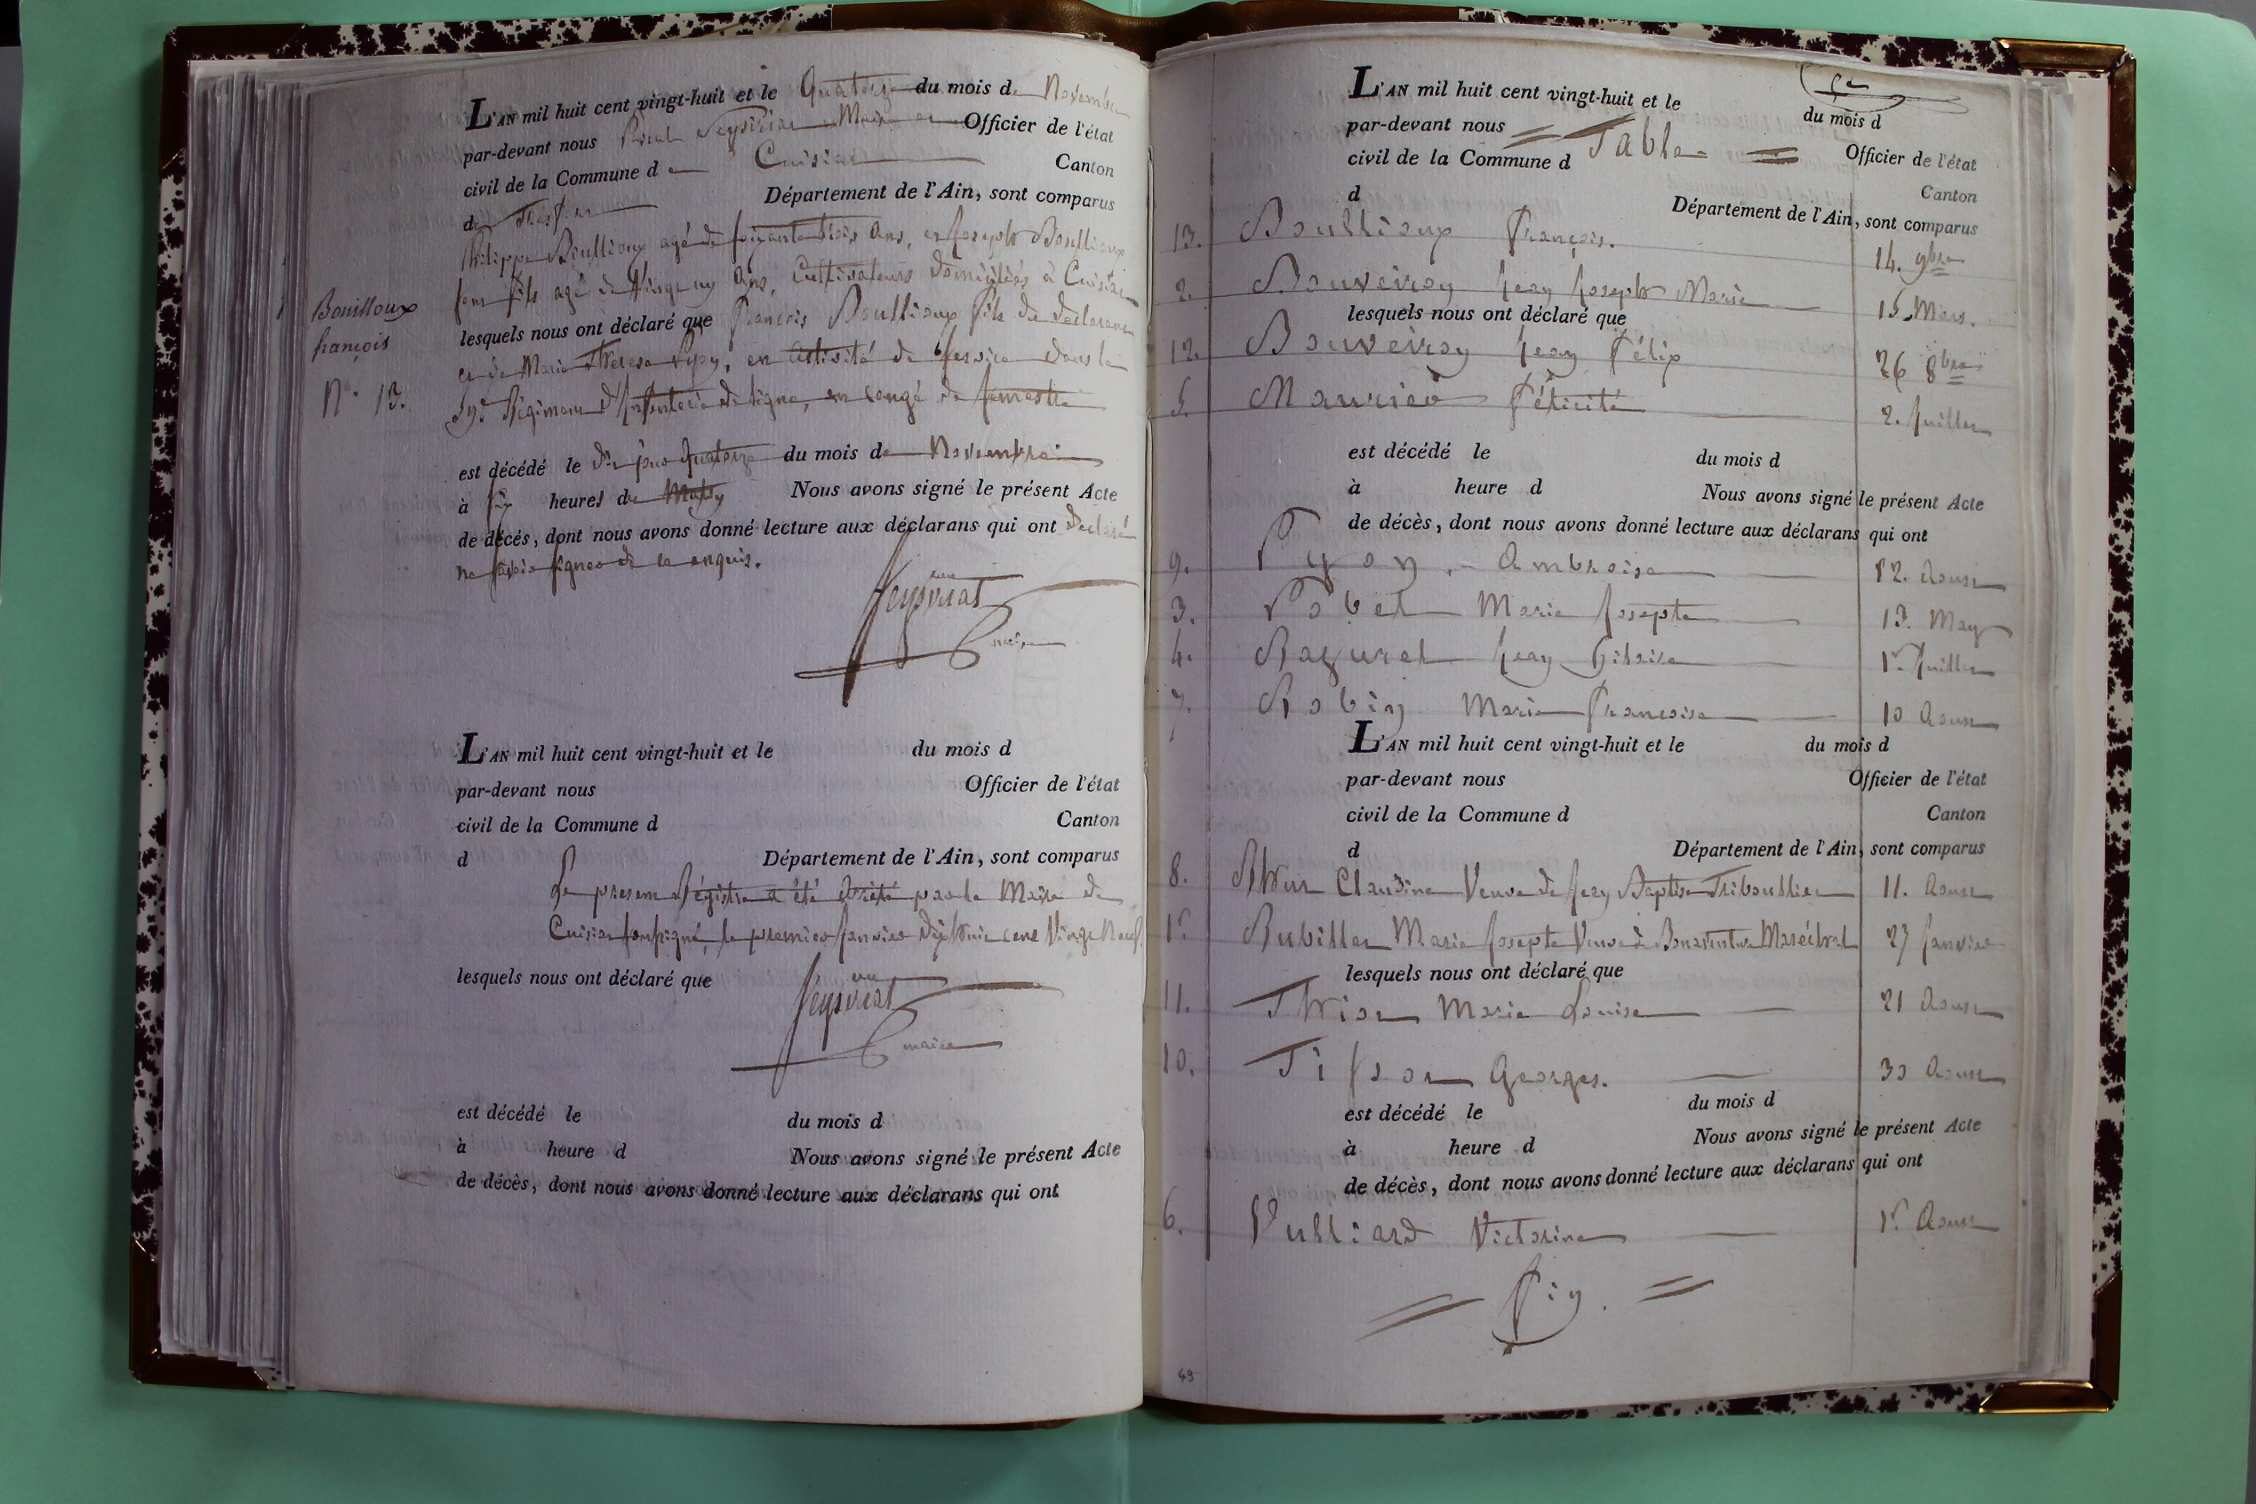 L'AN mil huit cent vingt-huit et le Quatorze du mois de Novembre
par-devant nous Maire et Officier de l'état
civil de la Commune de Cuisiat Canton
de Département de l'Ain, sont comparus
Philippe Boullioux agé de soixante trois ans, et Joseph Boullioux
son fils agé de Vingt un ans, Cultivateurs domiciliés à Cuisiat
lesquels nous ont déclaré que François Boullioux fils du déclarant
et de Marie Therese Pyon, en activité de service dans le
Régiment d'Infanterie de ligne, en congé de semestre
Bouilloux
françois
N° 13.
est décédé le dit jour Quatorze du mois de Novembre
à six heures du Matin Nous avons signé le présent Acte
de décès, dont nous avons donné lecture aux déclarans qui ont declaré
ne savoir signer de ce enquis.
Peysvrat
maire
L'AN mil huit cent vingt-huit et le du mois d
par-devant nous Officier de l'état
civil de la Commune d Canton
d Département de l'Ain, sont comparus
Le present Régistre a été arrêté par le Maire de
Cuisiat soussigné, le premier Janvier Dix huit cent Vingt Neuf.
lesquels nous ont déclaré que
Peysvrat
maire
est décédé le du mois d
à heure d Nous avons signé le présent Acte
de décès, dont nous avons donné lecture aux déclarans qui ont
L'AN mil huit cent vingt-huit et le du mois d
par-devant nous Officier de l'état
civil de la Commune d Table Canton
d Département de l'Ain, sont comparus
13. Boullioux François. 14. 9bre
2. Bouveiron Jean Joseph Marie 15. Mars.
lesquels nous ont déclaré que
12. Bouveiron Jean Félix 26 8bre
5. Maurier Félicité 2. Juillet
est décédé le du mois d
à heure d Nous avons signé le présent Acte
de décès, dont nous avons donné lecture aux déclarans qui ont
9. Pyon Ambroise 12. Aoust
3. Pobel Marie Josepte 13. May
4. Raguret Jean Hilaire 1r. Juillet
7. Robin Marie Françoise 10 Aoust
L'AN mil huit cent vingt-huit et le du mois d
par-devant nous Officier de l'état
civil de la Commune d Canton
d Département de l'Ain, sont comparus
8. Claudine Veuve de Jean Baptiste Thiboullier 11. Aoust
1r. Rubillet Marie Josepte Veuve de Bonaventure Maréchal 27 Janvier
lesquels nous ont déclaré que
11. Marie Louise 21 Aoust
10. Tisson Georges. 30 Aoust
est décédé le du mois d
à heure d Nous avons signé le présent Acte
de décès, dont nous avons donné lecture aux déclarans qui ont
6. Vulliard Victorine 1r. Aoust
Fin.
49